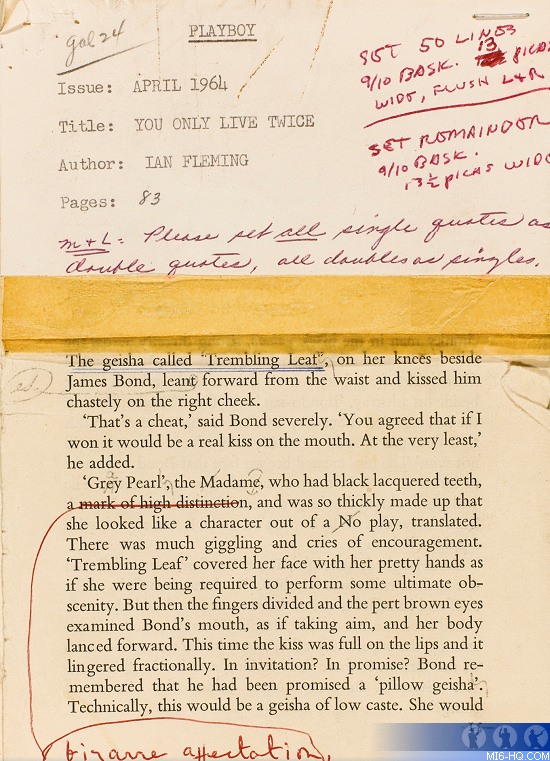 gal 24
PLAYBOY
Issue: APRIL 1964
Title: YOU ONLY LIVE TWICE
Author: IAN FLEMING
Pages: 83
SET 50 LINES
9/10 BASK. 13 picas
WIDE, FLUSH L+R
SET REMAINDER
9/10 BASK.
13 ½ picas WIDE
m+L: Please set all single quotes as
double quotes, all doubles as singles.
The geisha called ‘Trembling Leaf’, on her knees beside
James Bond, leant forward from the waist and kissed him
chastely on the right cheek.
‘That’s a cheat,’ said Bond severely. ‘You agreed that if I
won it would be a real kiss on the mouth. At the very least,’
he added.
‘Grey Pearl’, the Madame, who had black lacquered teeth,
a mark of high distinction, and was so thickly made up that
she looked like a character out of a No play, translated.
There was much giggling and cries of encouragement.
‘Trembling Leaf’ covered her face with her pretty hands as
if she were being required to perform some ultimate ob-
scenity. But then the fingers divided and the pert brown eyes
examined Bond’s mouth, as if taking aim, and her body
lanced forward. This time the kiss was full on the lips and it
lingered fractionally. In invitation? In promise? Bond re-
membered that he had been promised a ‘pillow geisha’.
Technically, this would be a geisha of low caste. She would
bizarre affectation,
MI6-HQ.COM